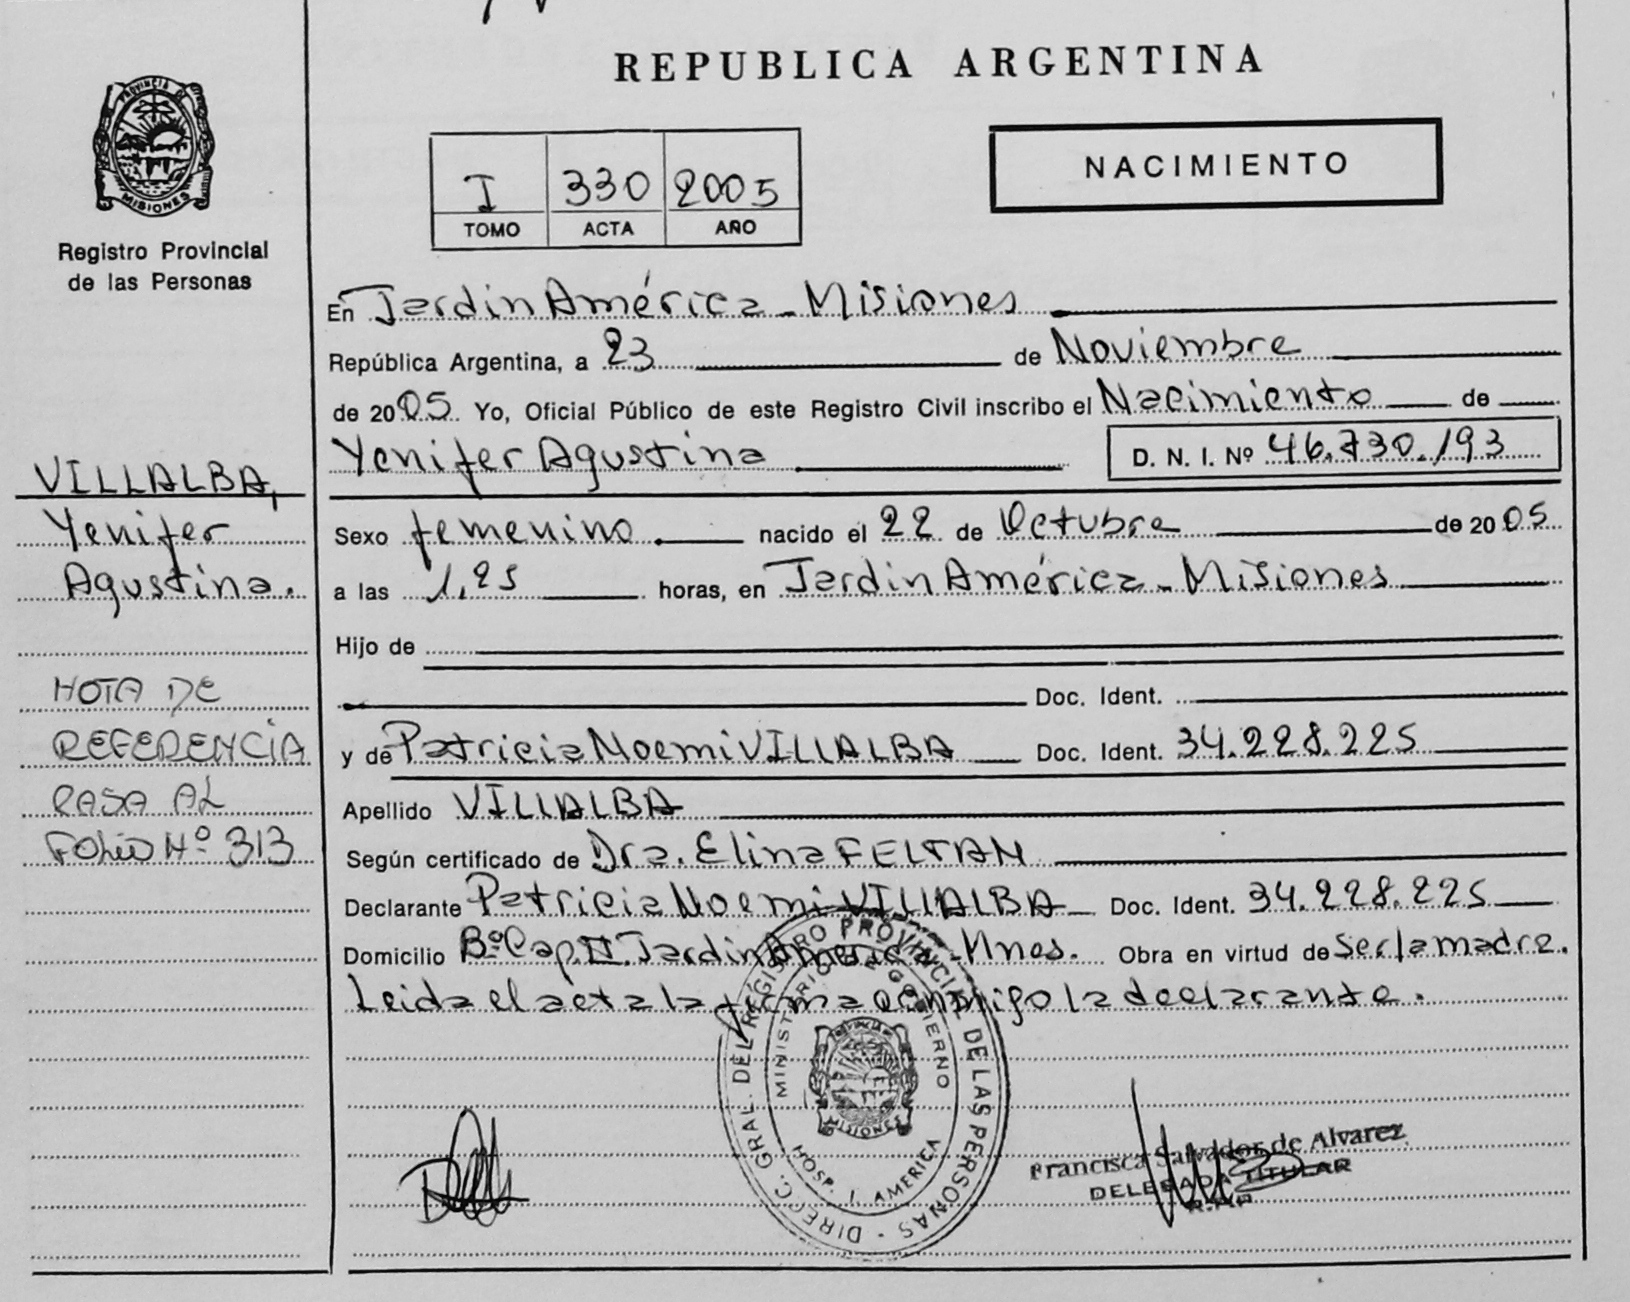 REPUBLICA ARGENTINA
PROVINCIA DE
MISIONES
Registro Provincial
de las Personas
I 330 2005
TOMO ACTA AÑO
NACIMIENTO
En Jardin América - Misiones
República Argentina, a 23 de Noviembre
de 2005 Yo, Oficial Público de este Registro Civil inscribo el Nacimiento de
Yenifer Agustina D. N. I. Nº 46.730.193
VILLALBA,
Yenifer
Agustina.
Sexo femenino nacido el 22 de Octubre de 2005
a las 1,25 horas, en Jardin América - Misiones
Hijo de
Doc. Ident.
y de Patricia Noemi VILLALBA Doc. Ident. 34.228.225
Apellido VILLALBA
Según certificado de Dra. Elina FELTAN
Declarante Patricia Noemi VILLALBA Doc. Ident. 34.228.225
Domicilio Bº Cap. II. Jardin América - Mnes. Obra en virtud de Ser la madre.
Leida el acta la firma conmigo la declarante.
NOTA DE
REFERENCIA
PASA AL
FOLIO Nº 313
DIREC. GRAL. DEL REGISTRO PROVINCIAL DE LAS PERSONAS
MINISTERIO DE GOBIERNO
HOSP. J. AMERICA
MISIONES
Francisca Salvador de Alvarez
DELEGADA TITULAR
R.P.P